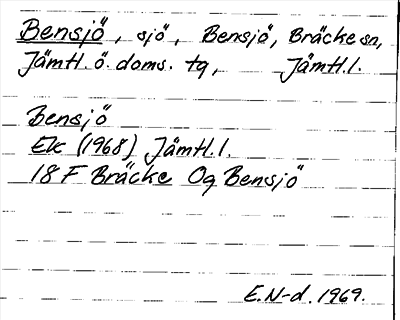 Bensjö, sjö, Bensjö, Bräcke sn,
Jämtl. ö. doms. tg, Jämtl. l.
Bensjö
Ek (1968) Jämtl. l.
18 F Bräcke Og Bensjö
E. N-d. 1969.